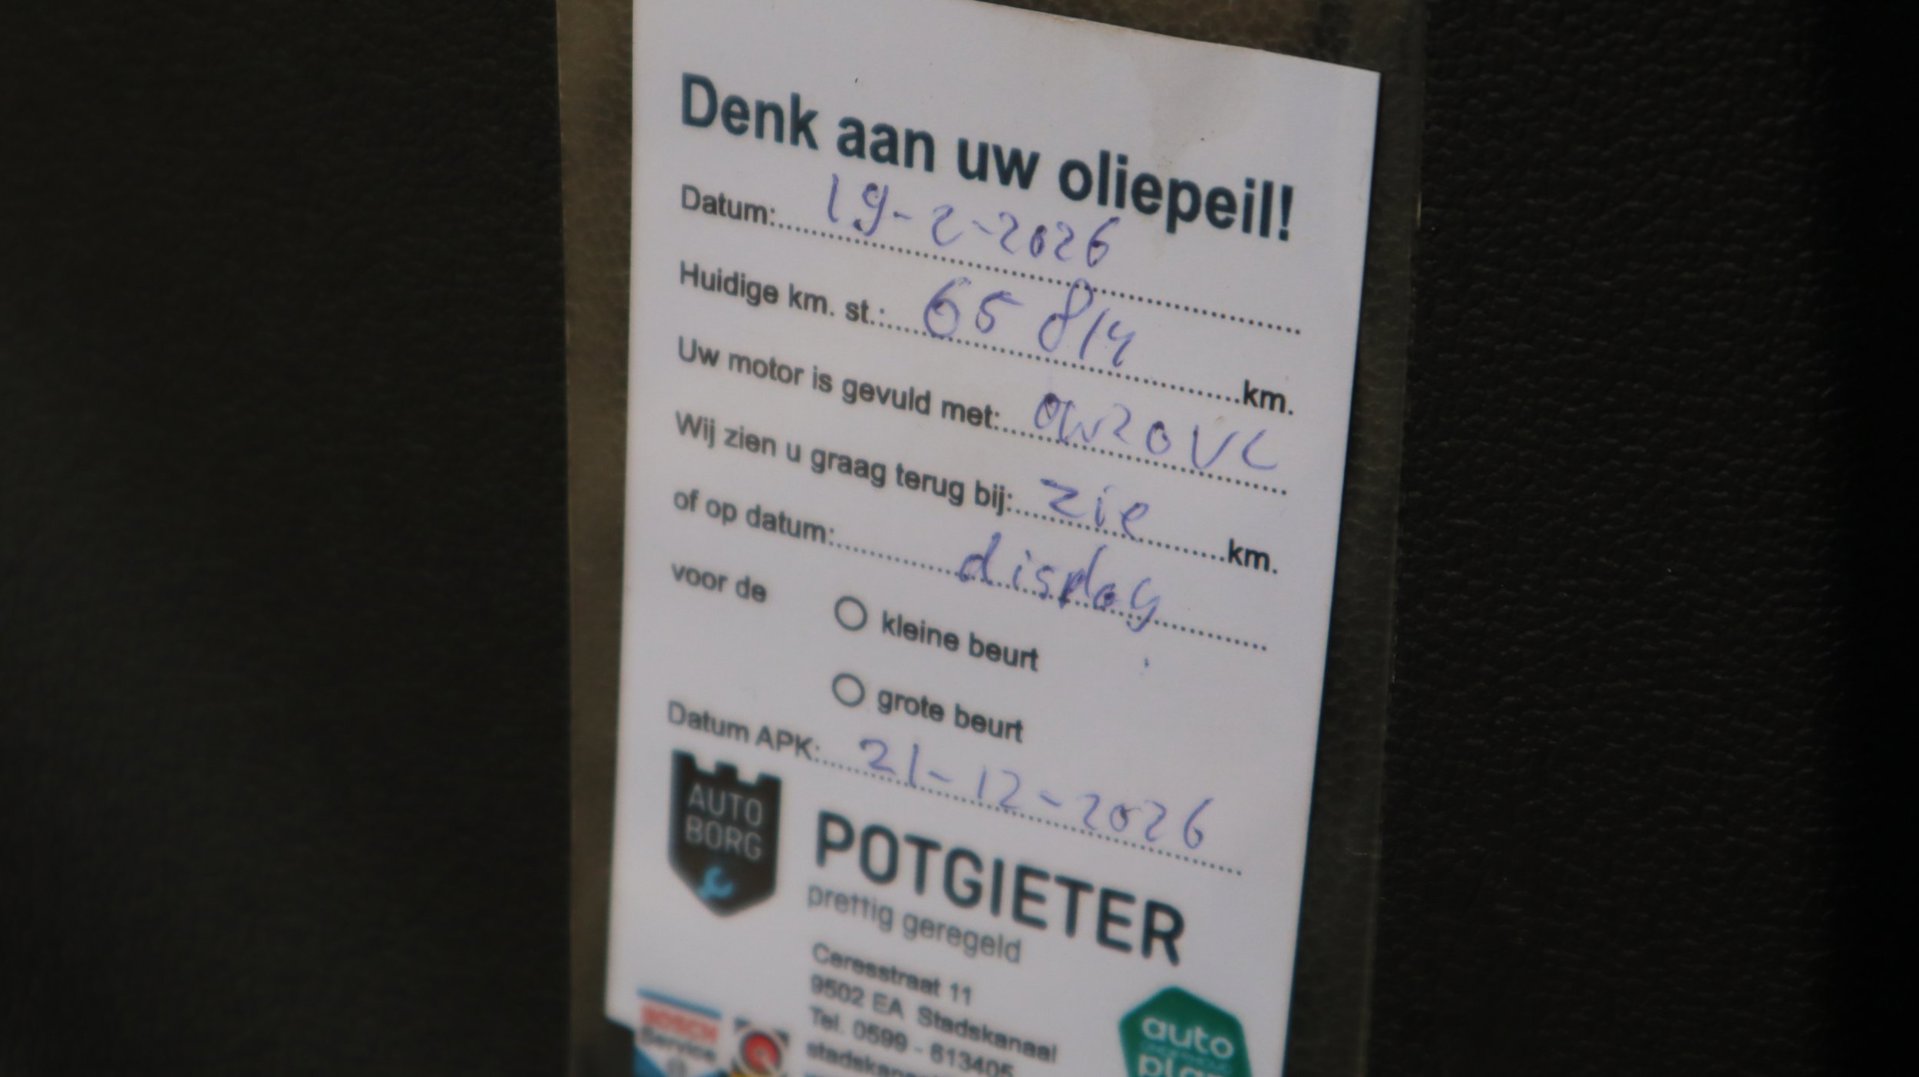 Denk aan uw oliepeil!
Datum: 19-2-2026
Huidige km. st.: 65 814 km.
Uw motor is gevuld met: 0W20 VC
Wij zien u graag terug bij: zie km.
of op datum: display
voor de
kleine beurt
grote beurt
Datum APK: 21-12-2026
AUTO
BORG
POTGIETER
prettig geregeld
Ceresstraat 11
9502 EA Stadskanaal
Tel. 0599 - 613405
BOSCH
Service
auto